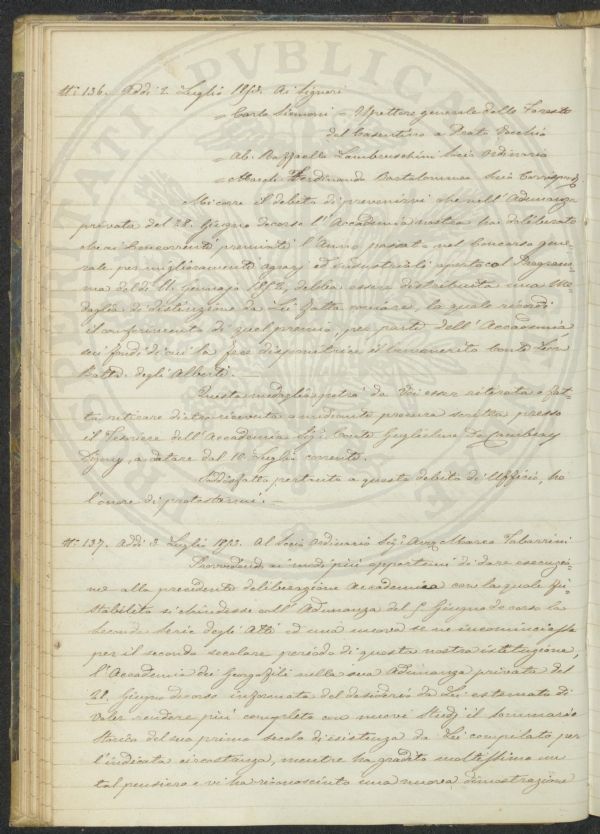 PROSPERITATI PUBLICAE
N: 136. Addì 2 Luglio 1853. Ai Signori
= Carlo Siemoni = Ispettore generale delle Foreste
del Casentino a Prato Vecchio
= Ab: Raffaello Lambruschini Socio Ordinario
= March: Ferdinando Bartolommei Socio Corrisp.
Mi corre il debito di prevenirvi che nell'Adunanza
privata del 28. Giugno decorso l'Accademia nostra ha deliberato
che ai Concorrenti premiati l'Anno passato nel Concorso gene-
rale per miglioramenti agrarj ed industriali aperto col Program-
ma del dì 11. Gennajo 1852, debba essere distribuita una Me-
daglia di distinzione da Lei fatta coniare, la quale ricordi
il conferimento di quel premio, per parte dell'Accademia
sui fondi di cui la fece dispositrice il benemerito Conte Leon
Batta. degli Alberti.
Questa medaglia potrà da Voi esser ritirata o fat-
ta ritirare dietro ricevuta o mediante procura scritta presso
il Tesoriere dell'Accademia Sig: Conte Guglielmo De Cambray
Digny, a datare dal 10 Luglio corrente.
Soddisfatto pertanto a questo debito di Uffizio, ho
l'onore di protestarmi. —
N: 137. Addì 3 Luglio 1853. Al Socio Ordinario Sig: Avv. Marco Tabarrini
Provvedendo ai modi più opportuni di dare esecuzio-
ne alla precedente deliberazione Accademica con la quale fu
stabilito si chiudesse coll'Adunanza del 5 Giugno decorso la
seconda Serie degli Atti ed una nuova se ne incominciasse
per il secondo secolare periodo di questa nostra istituzione,
l'Accademia dei Georgofili nella sua Adunanza privata del
28. Giugno decorso informata del desiderio da Lei esternato di
voler rendere più completo con nuovi Studj il sommario
Storico del suo primo secolo di esistenza da Lei compilato per
l'indicata circostanza, mentre ha gradito moltissimo un
tal pensiero e vi ha riconosciuto una nuova dimostrazione